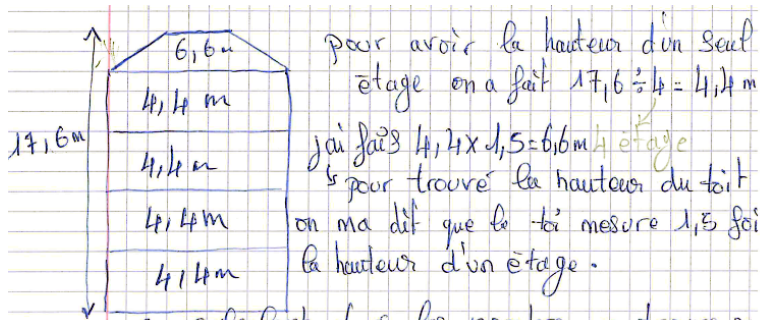 6,6m
4,4 m
4,4 m
4,4m
4,4m
17,6m
pour avoir la hauteur d'un seul
étage on a fait 17,6 ÷ 4 = 4,4 m
j'ai fais 4,4 x 1,5 = 6,6m 4 étage
↳ pour trouvé la hauteur du toit
on ma dit que le toi mesure 1,5 foi
la hauteur d'un étage.